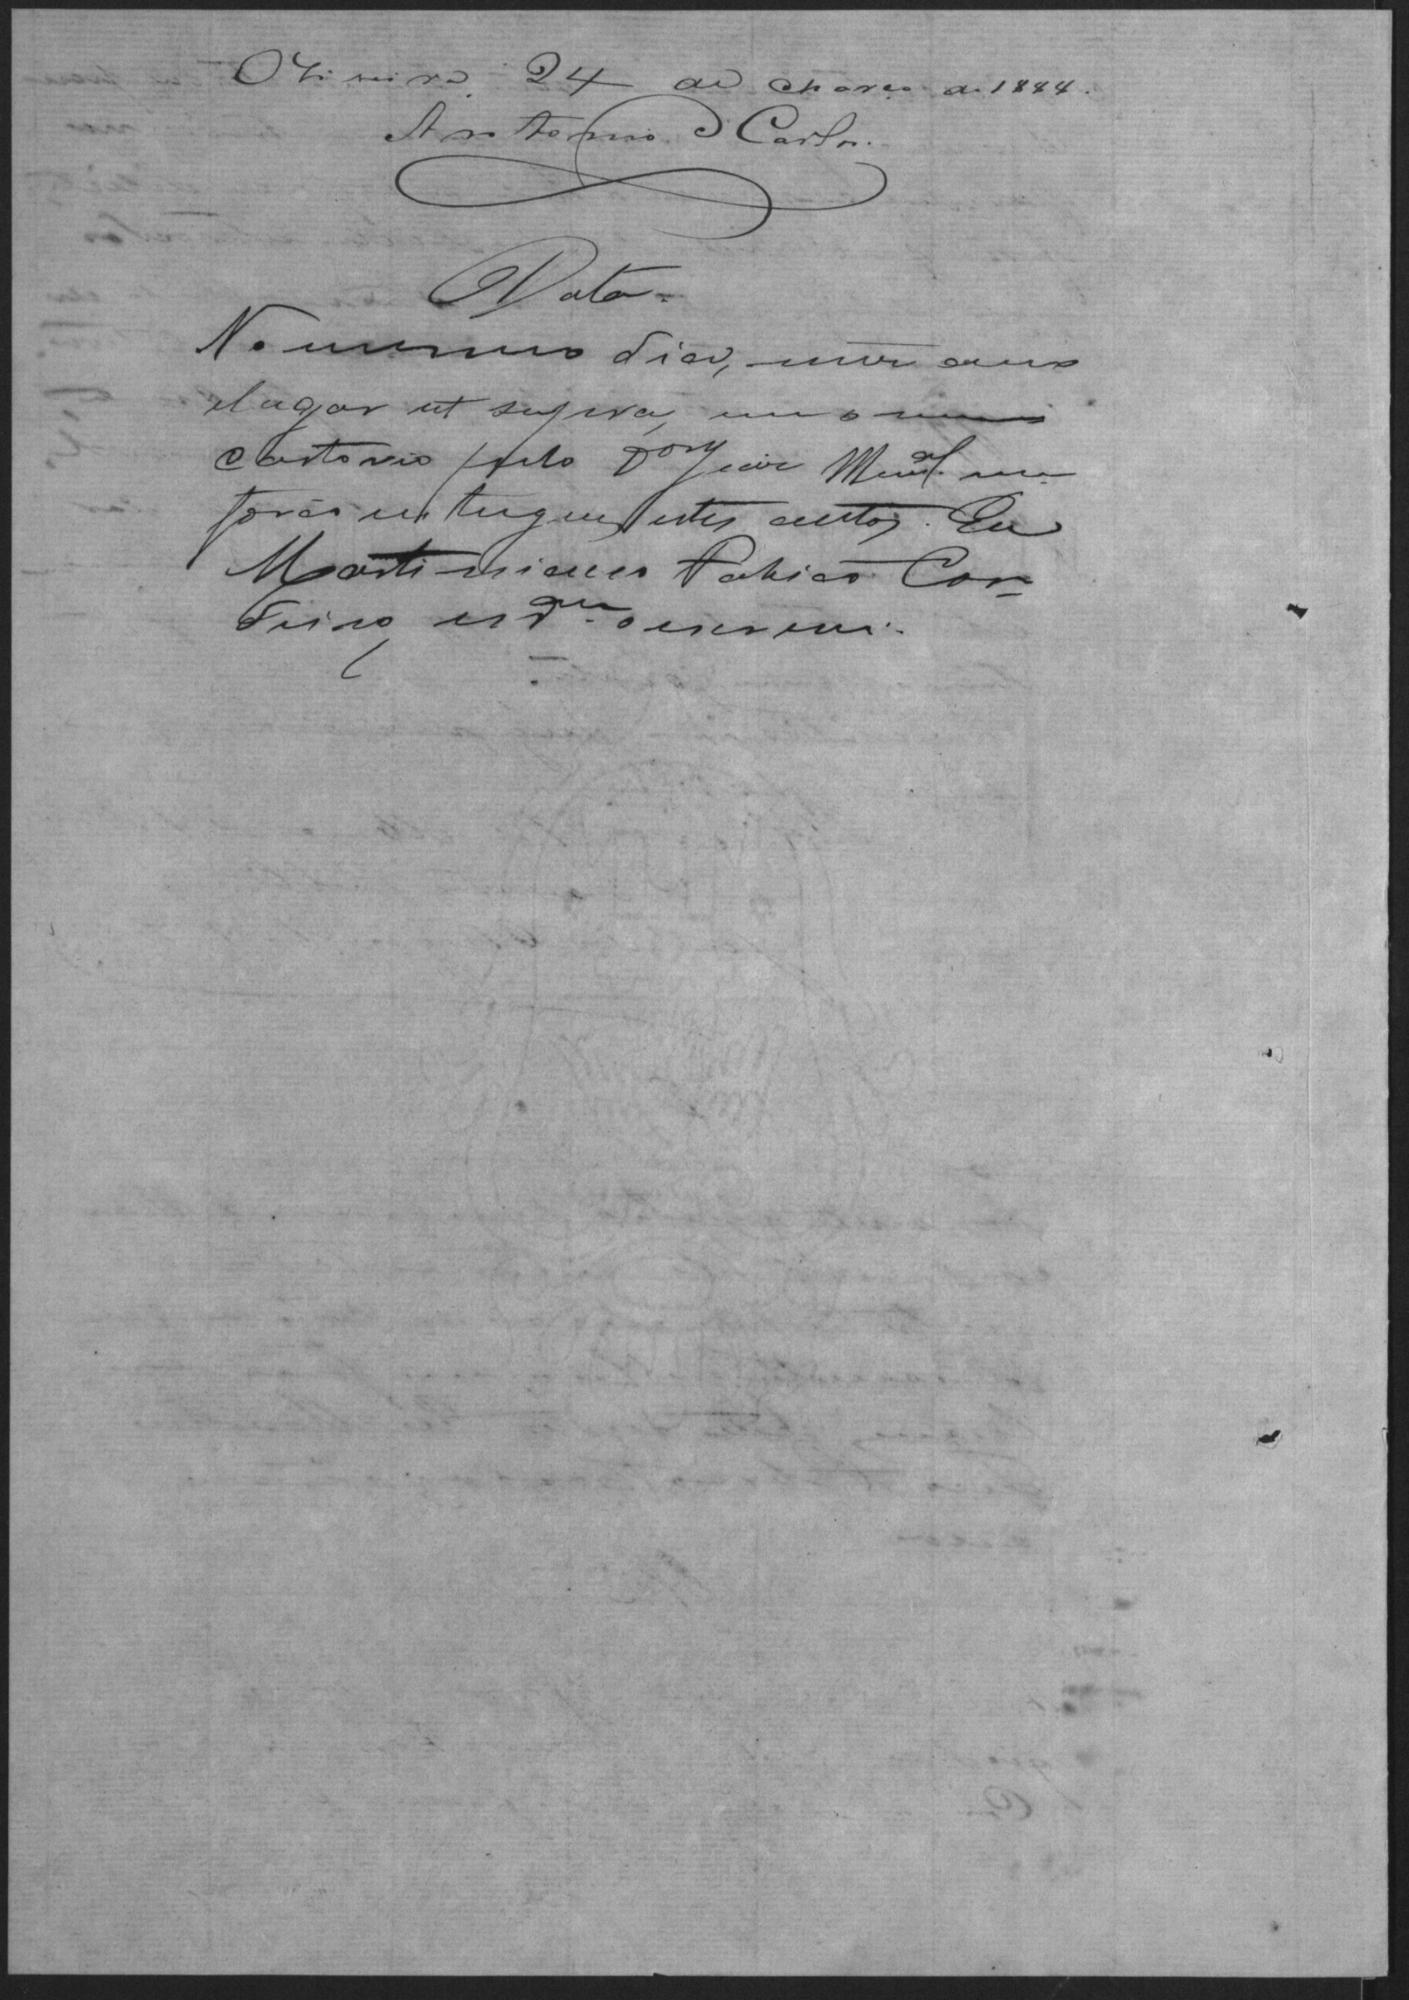 Oliveira, 24 de Março de 1884.
Antonio Carlos.
Data.
No mesmo dia, mez anno
e lugar ut supra, em o meu
cartorio pelo Dor Juiz Mual me
forão entregues estes autos. Eu
Martiniano Fabião Cor-
deiro, o escrevi.